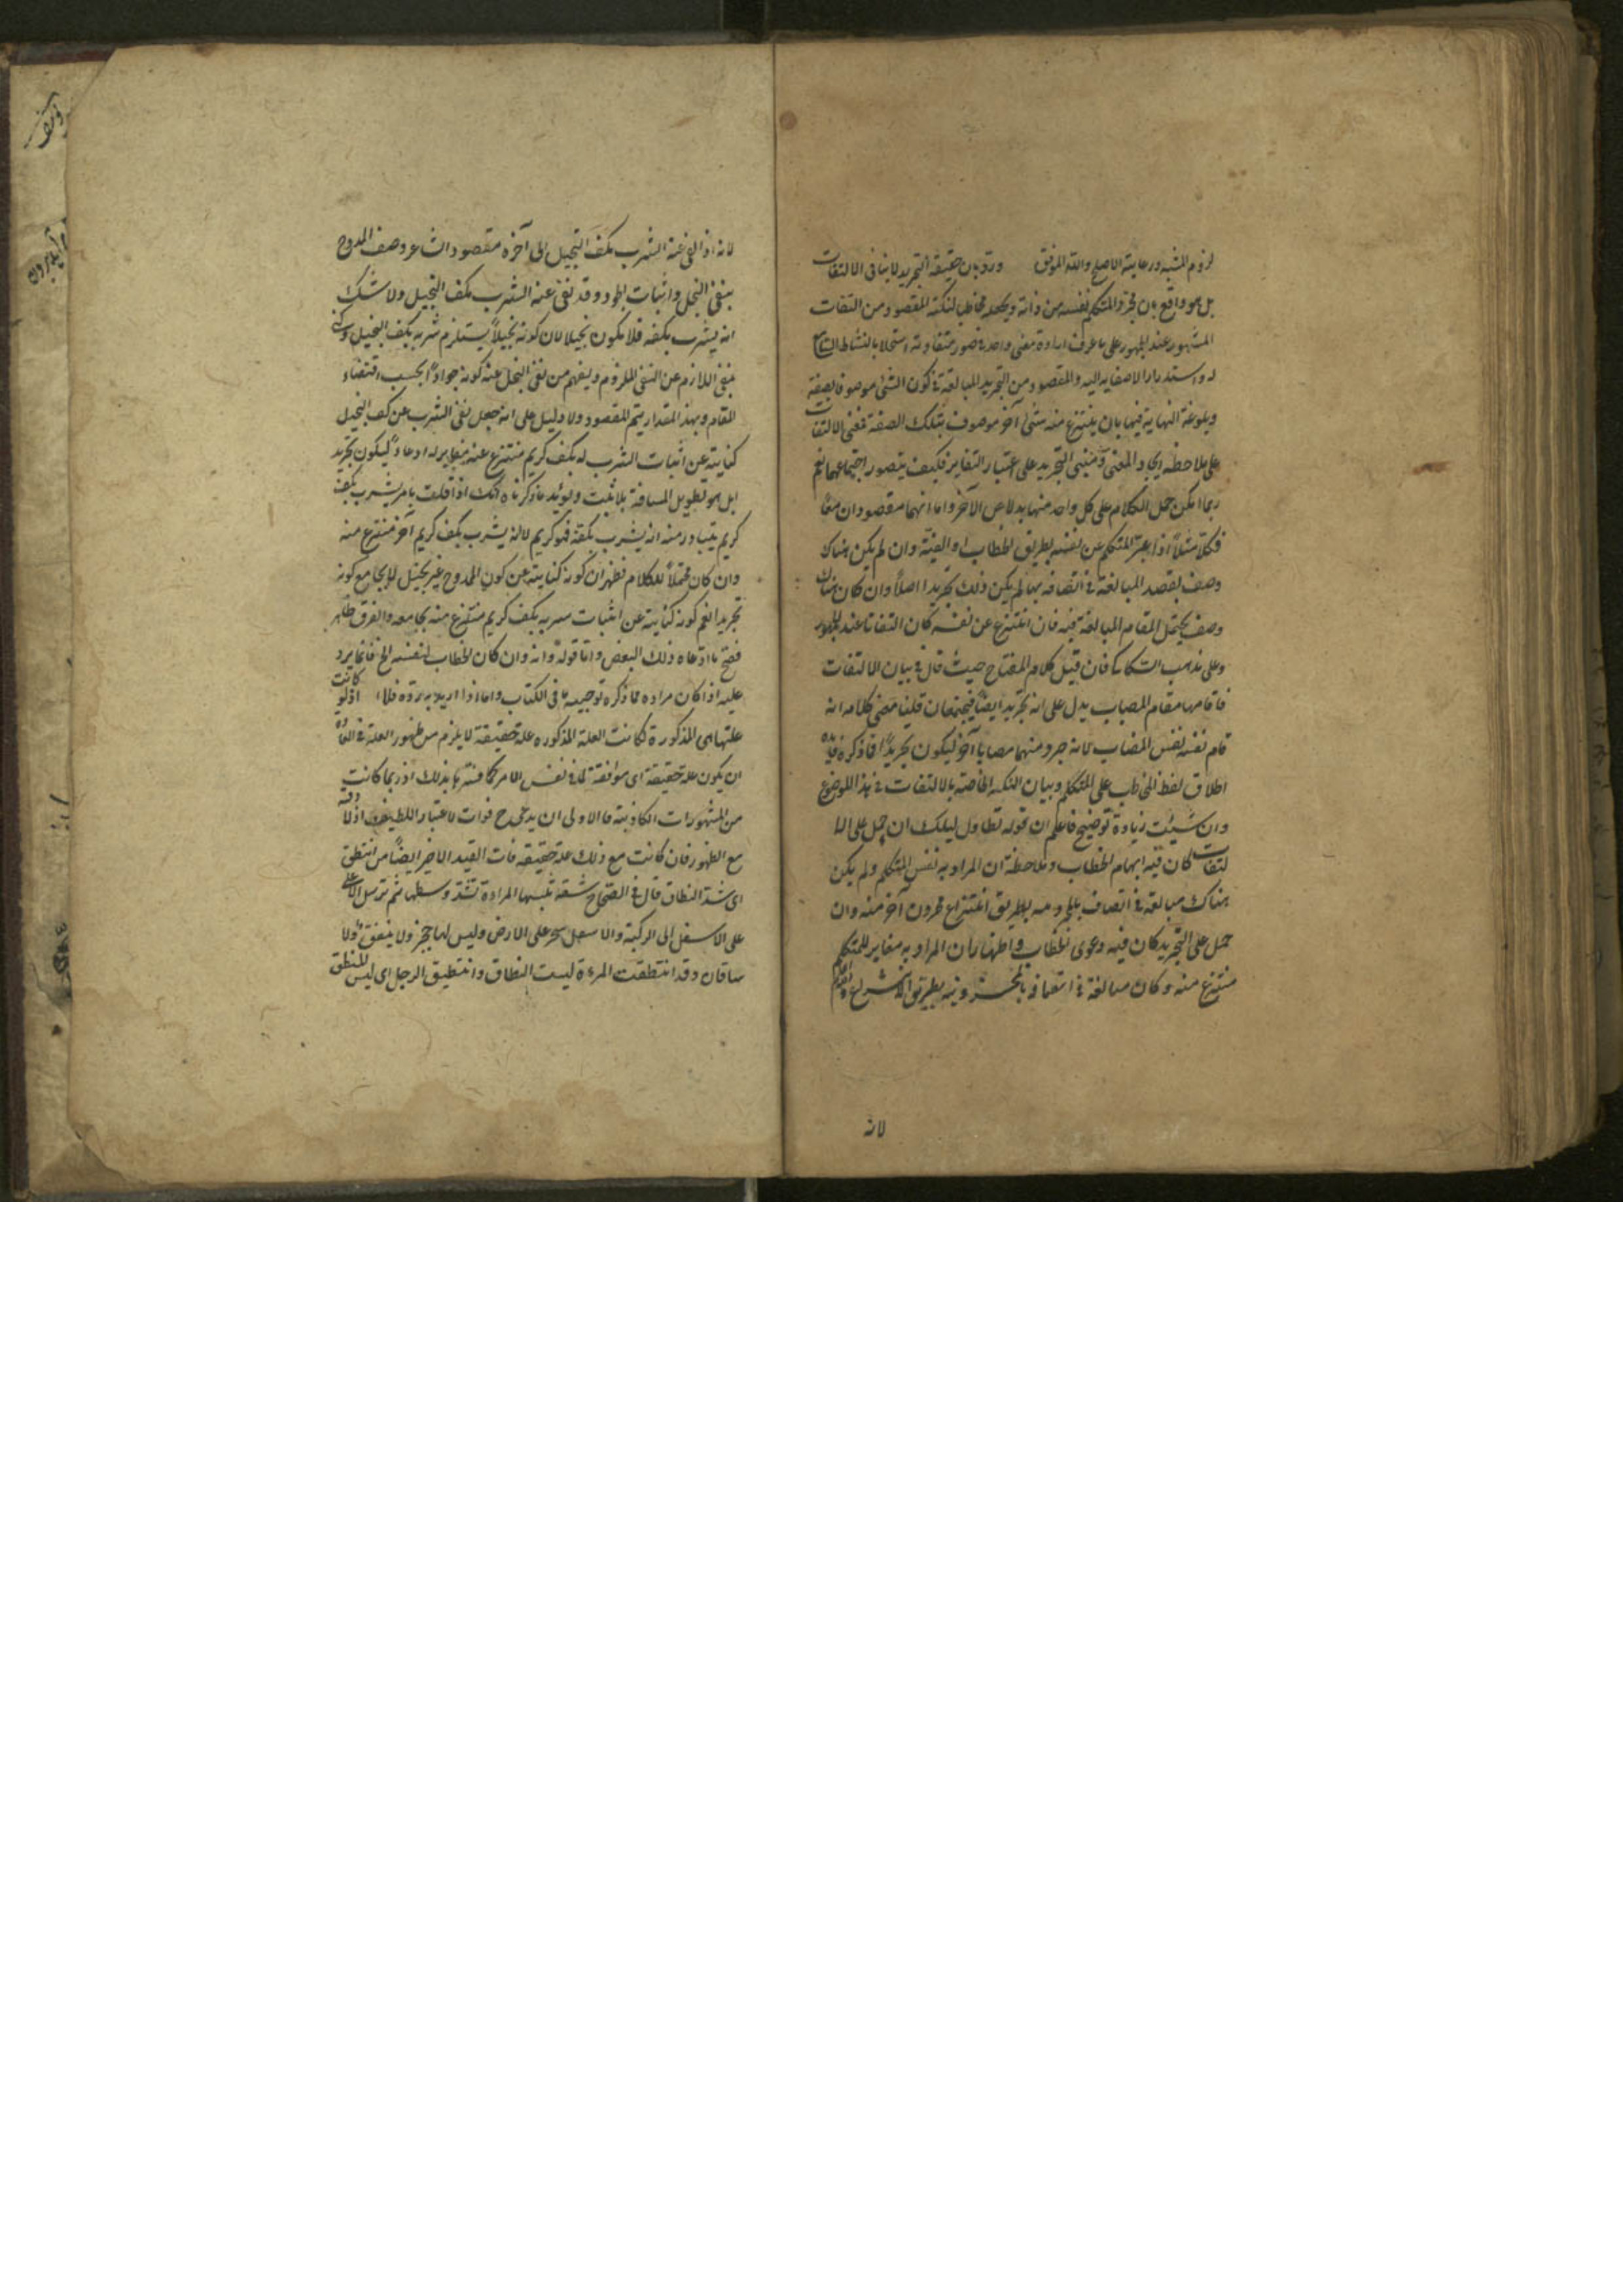 لزوم المشبه ورعاية الاصلح والله الموفق ورد بان حقيقة التجريد لا ينافى الالتفات
بل هو واقع بان يجرد المتكلم نفسه من ذاته ويجعله مخاطبا لنكتة المقصود من التفات
المشهور عند الجمهور على ما عرفت ارادة معنى واحد فى صور متفاوتة استجلابا لنشاط السامع
له واستدرارا لاصغايه اليه والمقصود من التجريد المبالغة فى كون الشئ موصوفا بصفة
وبلوغه النهاية فيها بان ينتزع منه شئ آخر موصوف بتلك الصفة فمبنى الالتفات
على ملاحظة اتحاد المعنى ومبنى التجريد على اعتبار التغاير فكيف يتصور اجتماعهما نعم
ربما امكن حمل الكلام على كل واحد منهما بدلا عن الآخر واما انهما مقصودان معا
فكلا مثلا اذا عبر المتكلم عن نفسه بطريق الخطاب او الغيبة وان لم يكن هناك
وصف يقصد المبالغة فى اتصافه بها لم يكن ذلك تجريدا اصلا وان كان هناك
وصف يحتمل المقام المبالغة فيه فان انتزع عن نفسه كان التفاتا عند الجمهور
وعلى مذهب السكاكى فان قيل كلام المفتاح حيث قال فى بيان الالتفات
فاقامها مقام المصاب يدل على انه تجريد ايضا فيجتمعان قلنا معنى كلامه انه
قام نفسه نفس المصاب لانه جرد منهما مصابا آخر ليكون تجريدا فما ذكره فايده
اطلاق لفظ المخاطب على المتكلم وبيان النكتة الخاصة بالالتفات فى هذا الموضع
وان شئت زيادة توضيح فاعلم ان قوله تطاول ليلك ان حمل على الا
لتفات كان فيه ايهام الخطاب وملاحظة ان المراد به نفس المتكلم ولم يكن
هناك مبالغة فى اتصافه بطريق انتزاع محزون آخر منه وان
حمل على التجريد كان فيه دعوى الخطاب واظهار ان المراد به مغاير للمتكلم
منتزع منه وكان مبالغة فى اتصافه بالمحزونية بطريق الانتزاع
لانه
لانه اذا نفى عنه الشرب بكف البخيل الى آخره مقصود الشاعر وصف الممدوح
بنفى البخل واثبات الجود وقد نفى عنه الشرب بكف البخيل ولا شك
انه يشرب بكفه فلا يكون بخيلا لان كونه بخيلا يستلزم شربه بكف البخيل
بنفى اللازم عن النفى الملزوم ويفهم من نفى البخل عنه كونه جوادا بحسب اقتضاء
المقام وبهذا المقدار يتم المقصود ولا دليل على انه جعل نفى الشرب عن كف البخيل
كناية عن اثبات الشرب له بكف كريم منتزع عنه مغاير له ادعاء ليكون تجريد
ا بل هو تطويل المسافة بلا ثبت ويؤيد ما ذكرناه انك اذا قلت يا من يشرب بكف
كريم يتبادر منه انه يشرب بكفه فهو كريم لا انه يشرب بكف كريم آخر منتزع منه
وان كان محتملا للكلام فظهر ان كونه كناية عن كون الممدوح غير بخيل لا يجامع كونه
تجريدا نعم كونه كناية عن اثبات شربه بكف كريم منتزع منه يجامعه والفرق ظاهر
فصح ما ادعاه ذلك البعض واما قوله وانه وان كان الخطاب لنفسه الخ فانما يرد
عليه اذا كان مراده مما ذكره توجيه ما فى الكتاب واما اذا اريد به رده فلا اذ لو كانت
علتها هى المذكورة لكانت العلة المذكوره علة حقيقة لا يلزم من ظهور العلة فى العادة
ان يكون علة حقيقة اى موافقة لما فى نفس الامر اذ ربما كانت
من المشهورات الكاذبة فالاولى ان يدعى ح فوات الاعتبار اللطيف اذ لا دقة
مع الظهور فان كانت مع ذلك علة حقيقة فات القيد الاخير ايضا من انتطق
اى شد النطاق قال فى الصحاح شقة تلبسها المراءة تشد وسطها ثم ترسل الاعلى
على الاسفل الى الركبة والاسفل ينجر على الارض وليس لها حجزة ولا نيفق ولا
ساقان وقد انتطقت المرءة لبست النطاق وانتطق الرجل اى لبس المنطق